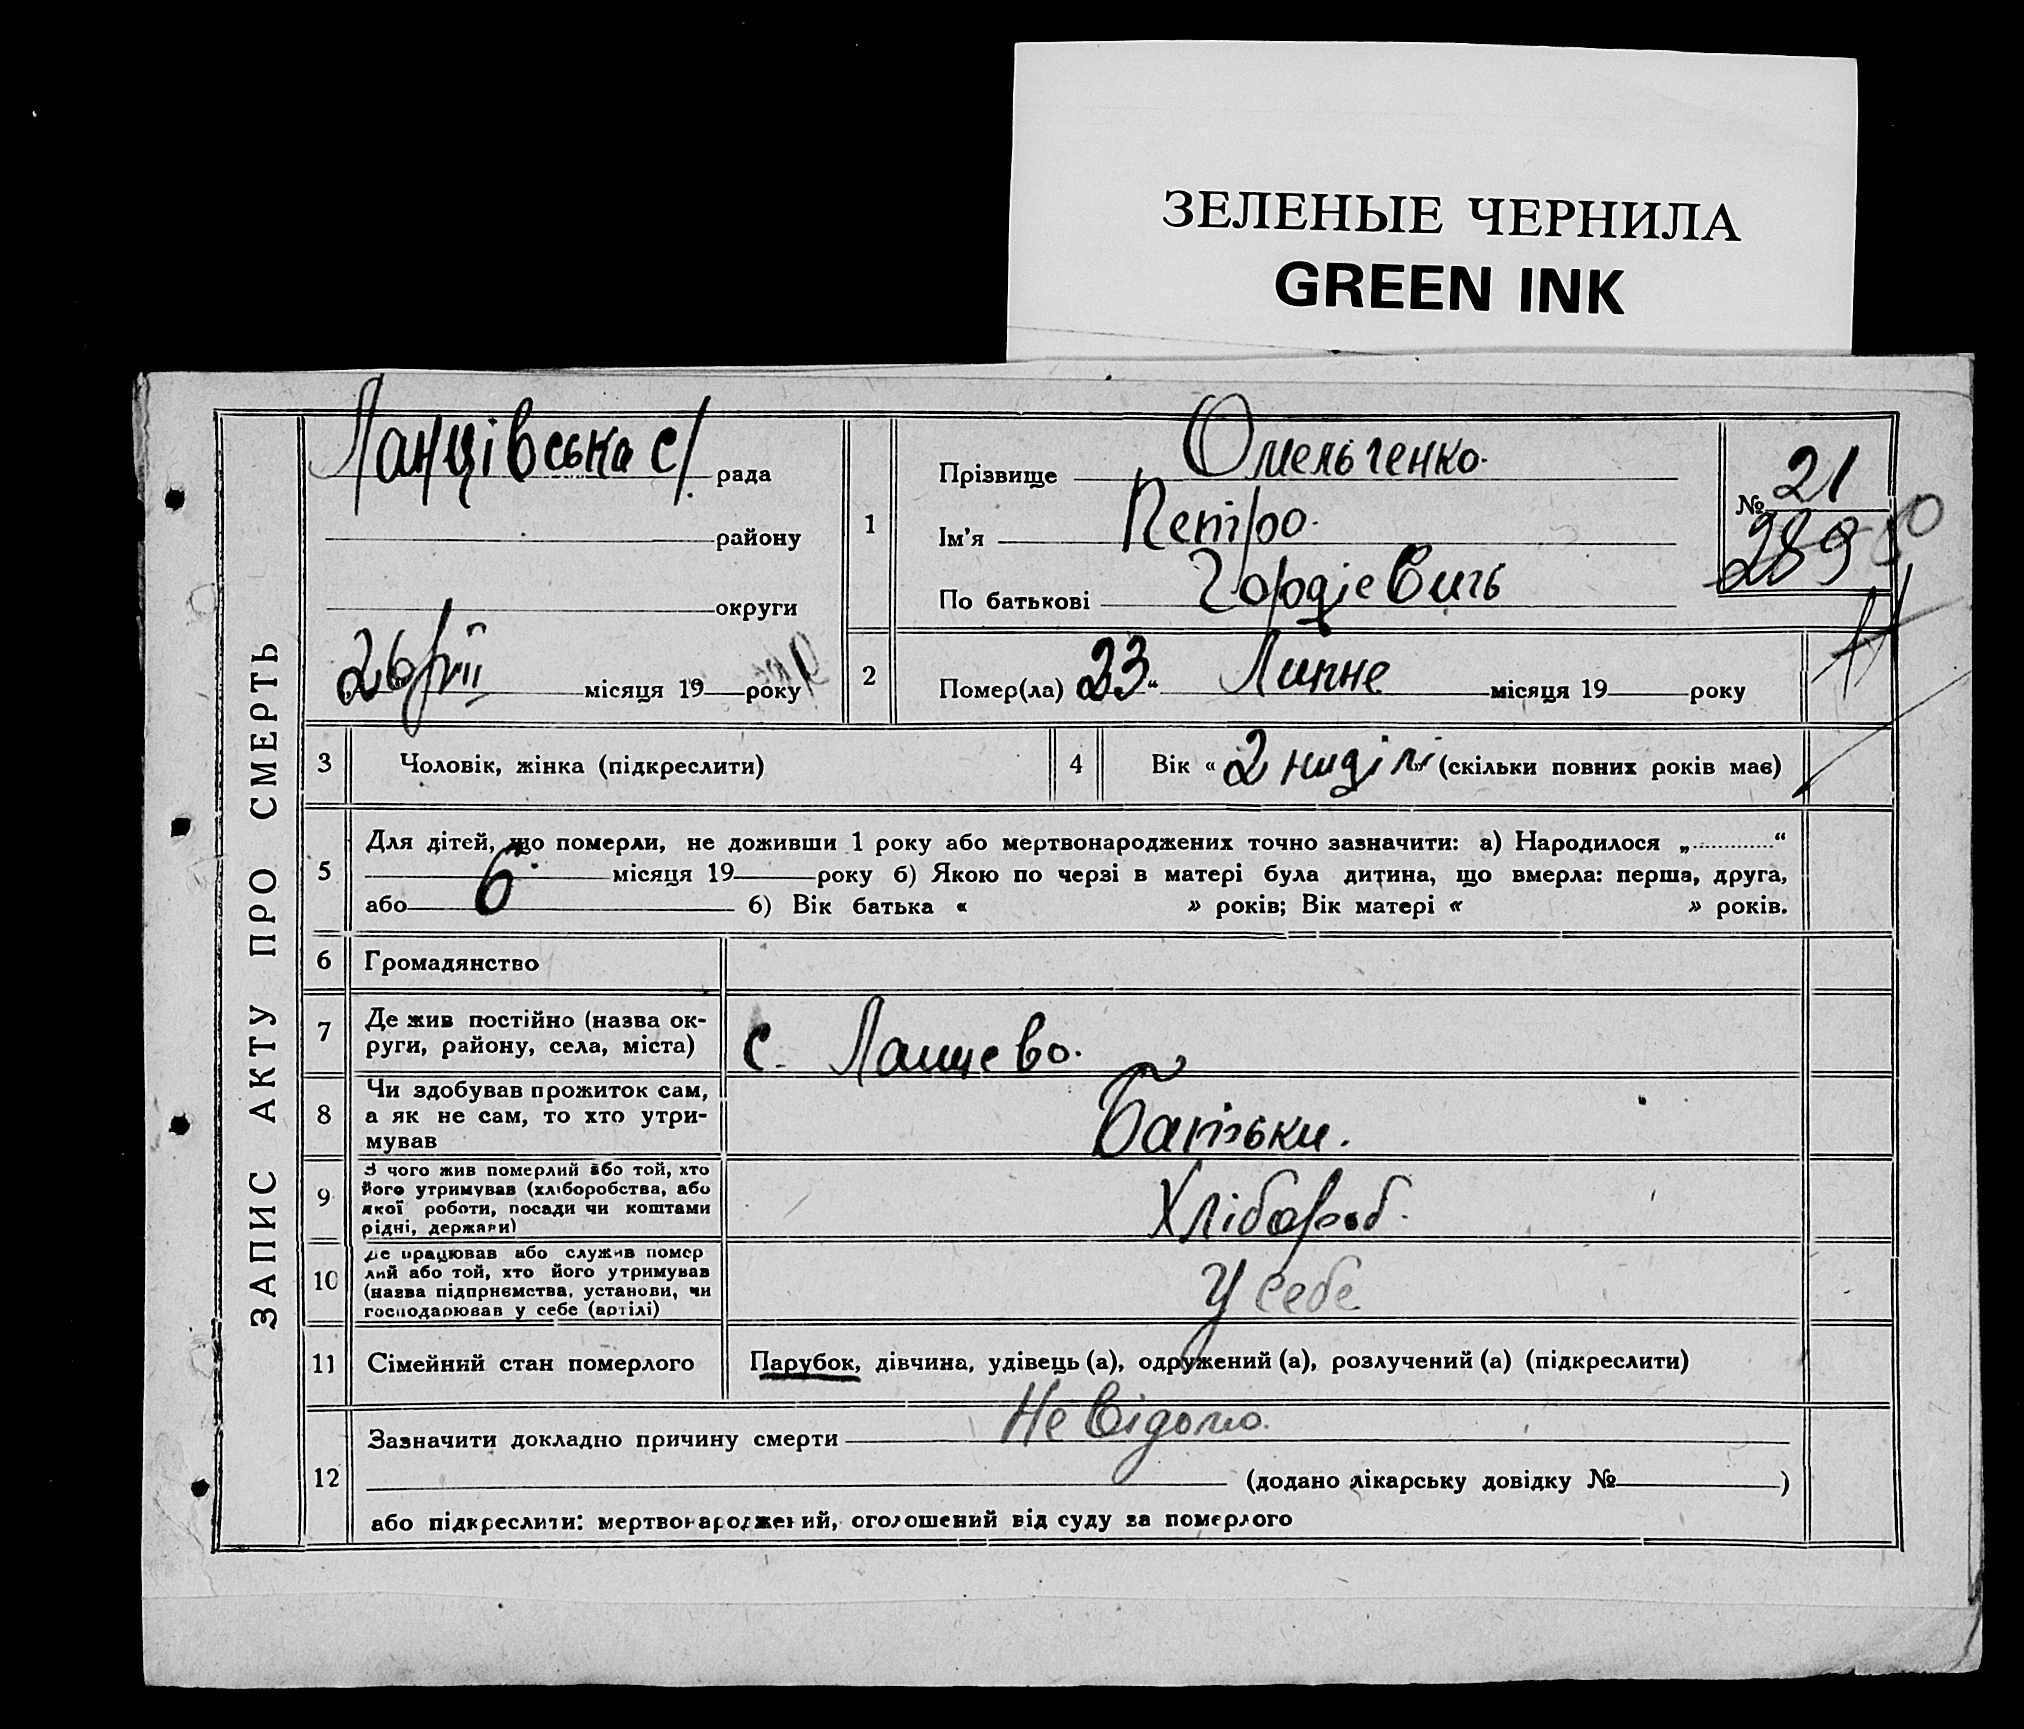 ЗЕЛЕНЫЕ ЧЕРНИЛА
GREEN INK
ЗАПИС АКТУ ПРО СМЕРТЬ
Ланцівська с/ рада
району
округи
26/VII місяця 19 року
1
Прізвище Омельченко.
Ім'я Петро.
По батькові Гордієвичь
№ 21
289
2
Помер(ла) 23 “ Липне місяця 19 року
3
Чоловік, жінка (підкреслити)
4
Вік « 2 ниділі » (скільки повних років має)
5
Для дітей, що померли, не доживши 1 року або мертвонароджених точно зазначити: а) Народилося „ “
місяця 19 року б) Якою по черзі в матері була дитина, що вмерла: перша, друга,
або 6 б) Вік батька « » років; Вік матері « » років.
6
Громадянство
7
Де жив постійно (назва ок-
руги, району, села, міста)
с. Ланцево.
8
Чи здобував прожиток сам,
а як не сам, то хто утри-
мував
Батьки.
9
З чого жив померлий або той, хто
його утримував (хліборобства, або
якої роботи, посади чи коштами
рідні, держави)
Хлібороб.
10
Де працював або служив помер
лий або той, хто його утримував
(назва підприємства, установи, чи
господарював у себе (артілі)
У себе
11
Сімейний стан померлого
Парубок, дівчина, удівець (а), одружений (а), розлучений (а) (підкреслити)
12
Зазначити докладно причину смерти Не відомо.
(додано лікарську довідку № )
або підкреслити: мертвонароджений, оголошений від суду за померлого